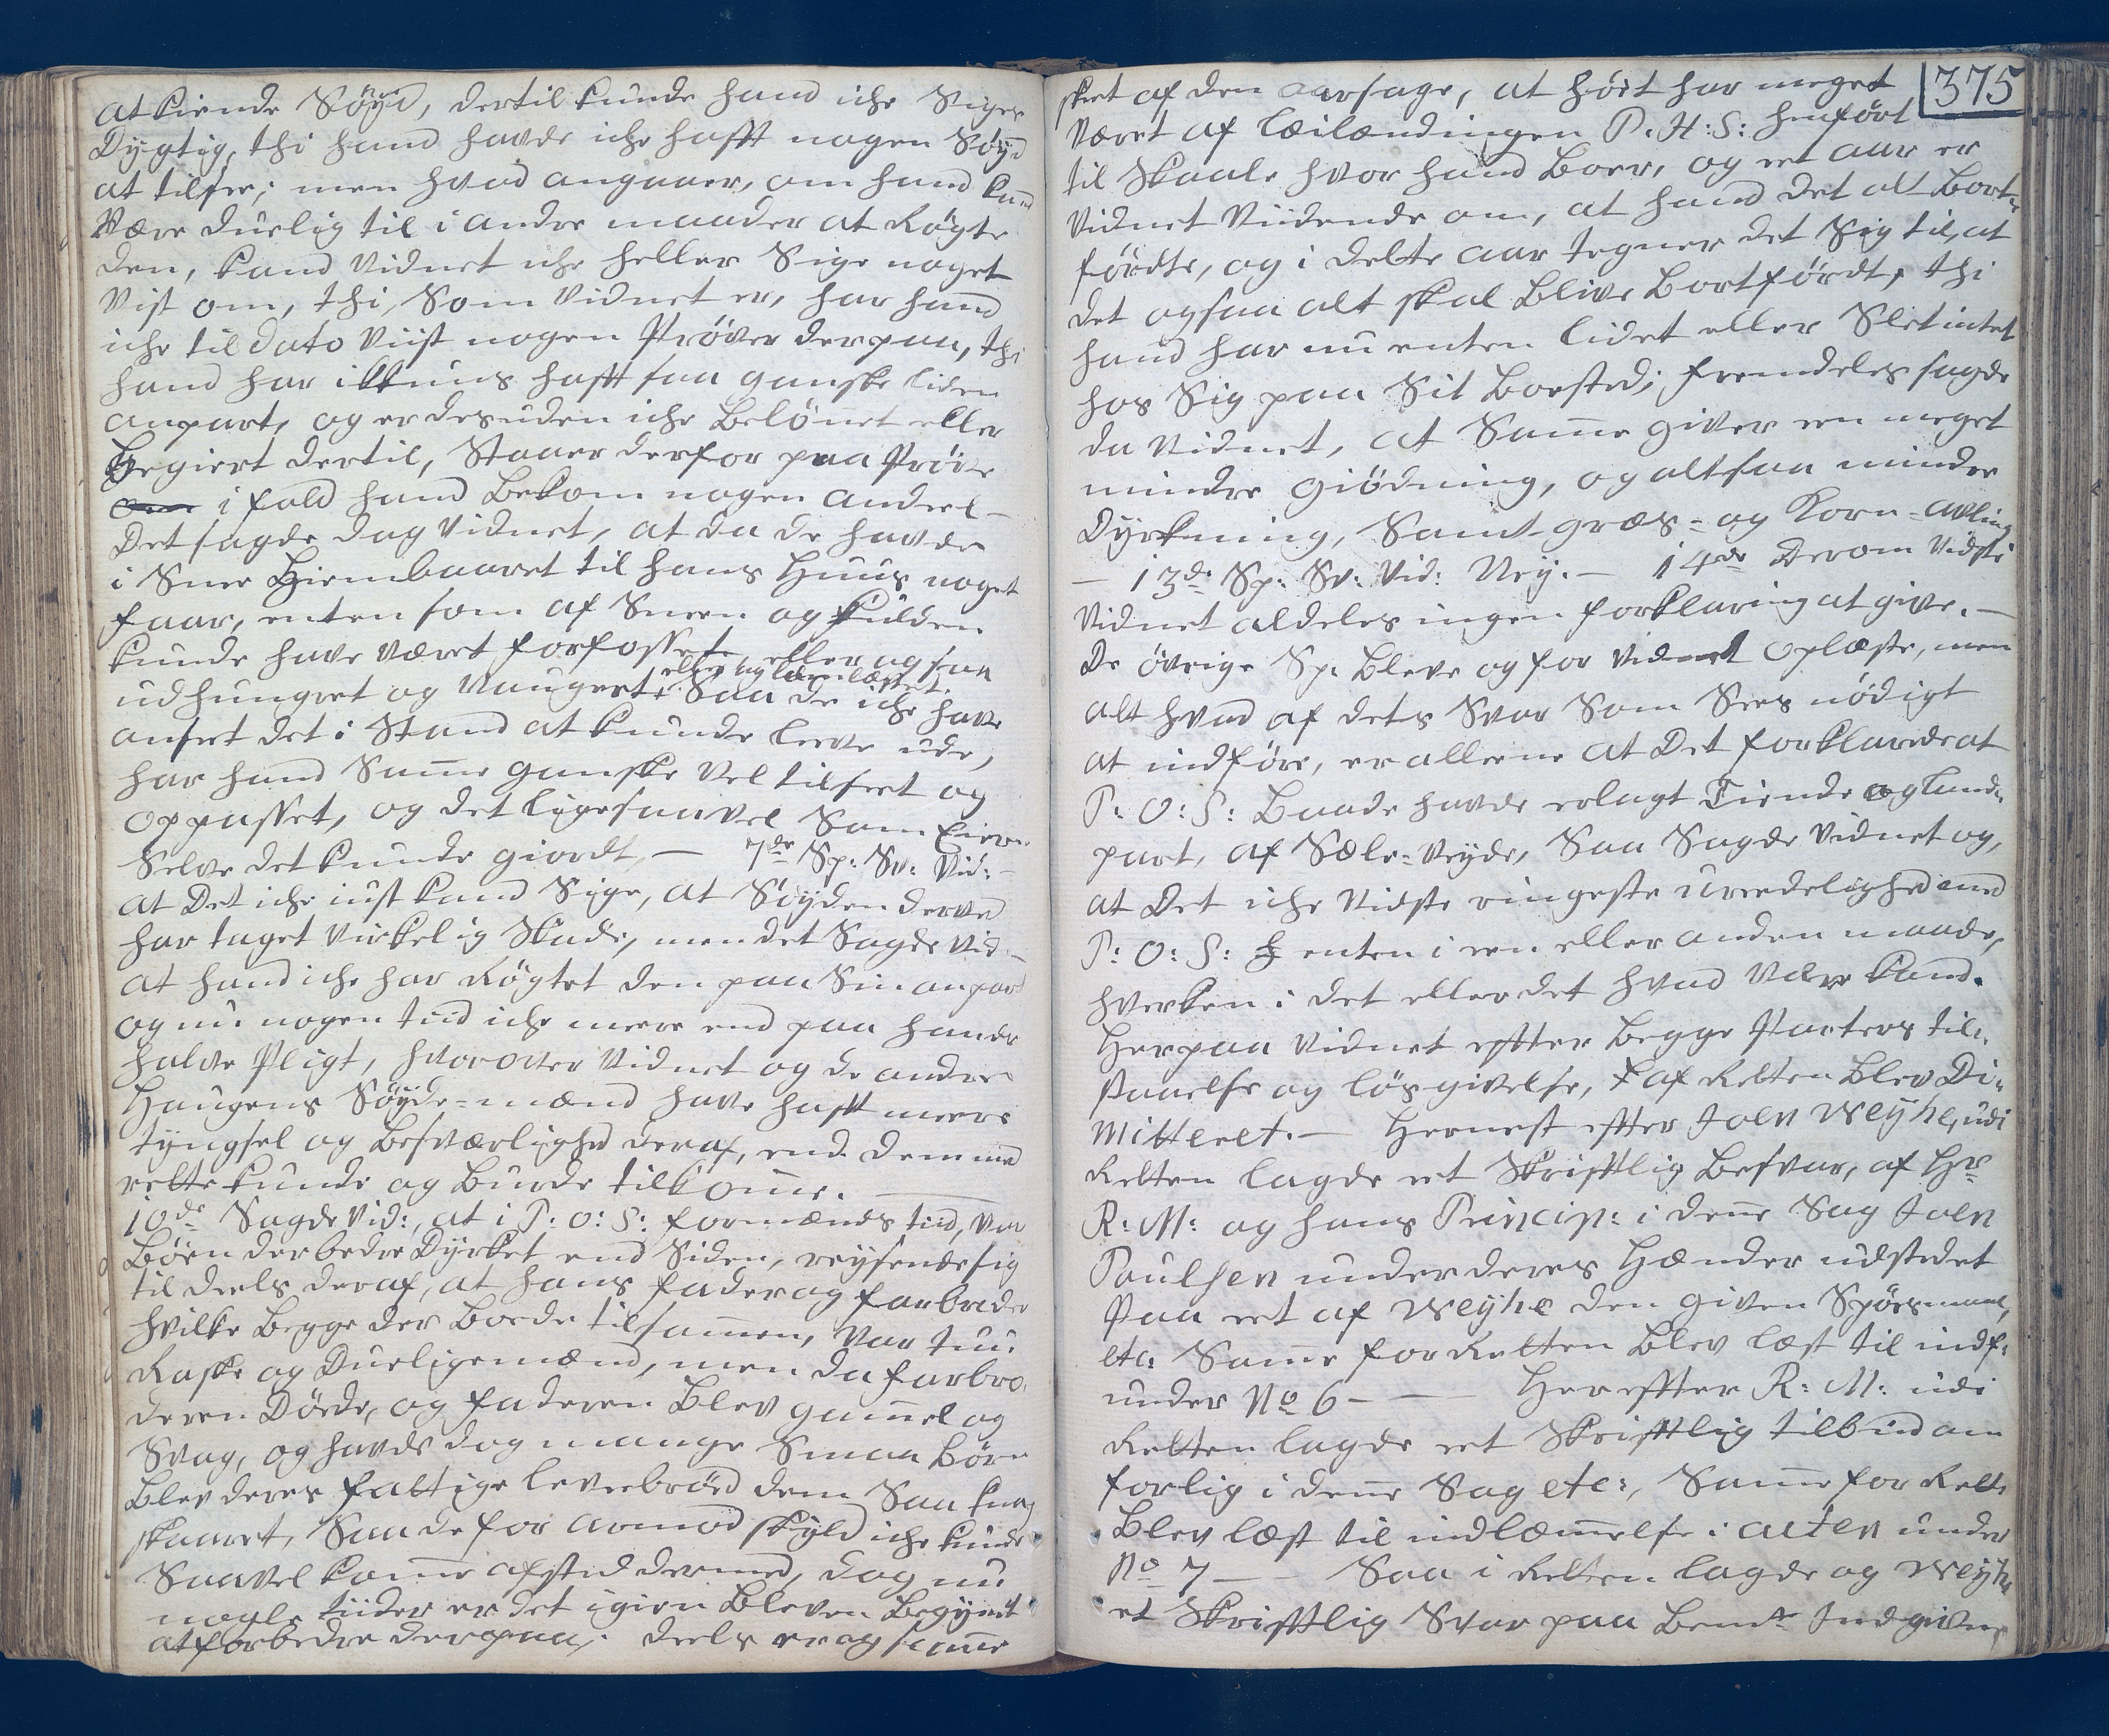 at kiende Søyd, dertil kunde hand iche Siges
Dygtig, thi hand havde iche hafft nogen Søyd
at tilsee; men hvad angaaer, om hand kand
Være duelig til i andre maader at Røgte
den, kand Vidnet iche heller Sige noget
Vist om, thi, Som Vidnet er, har hand
iche til dato Viist nogen Prøver derpaa, thi
hand har ikkuns hafft saa ganske liden
anpart, og er desuden iche Belønnet eller
Begiert dertil, Staaer derfor paa Prøve
i fald hand Bekom nogen anderl
Det sagde dog Vidnet, at da de havde
i Snee Hiembaaret til hans Huus noget
faar, enten som af Sneen og Kulden
kunde have været forfosset, eller ogsaa
udhungret og Maugert, Saa de iche have
anseet det i Stand at kunde leeve ude,
har hand Samme ganske Vel tilseet og
oppasset, og det ligesaavel Som Eieren
Selve det kunde giordt, — 7de Sp: Sv: Vid:
at Det iche iust kand Sige, at Søyden derved
har taget Virkelig Skade, men det Sagde Vid
at hand iche har Røgtet den paa Sin anpart
og nu nogen tiid iche meere end paa hands
halve Pligt, hvorover Vidnet og de andre
Haugens Søyde-mænd have hafft meere
tyngsel og Besværlighed deraf, end dem med
rette kunde og Burde tilkomme.
10de Sagde Vid:, at i P: O: S: formænds tiid, var
Bøen der bedre Dyrket end Siden, reysende sig
til deels deraf, at hans fader og farbroder
hvilke Begge der Boede tilsammen, var tuu
Raske og Duelige mænd, men da farbro-
deren Døde, og faderen Blev gammel og
Svag, og havde dog mange Smaa Børn
Blev deres fattige levebrød dem Saa knap
skaaret, Saa de for armod skyld iche kunde
Saavel komme afsted dermed, dog nu
nogle tiider er det igien Bleven Begynt
at forbedre derpaa, deels er og samme
375
skeet af den aarsage, at høet har meget
været af læilændingen P. H: S: henført
til Skaale hvor hand Boer, og eet aar er
Vidnet Viidende om, at hand det alt Bort-
førdte, og i dette aar tegner det Sig til, at
det ogsaa alt skal Blive Bortførdt, thi
hand har nu enten lidet eller Slet intet
hos Sig paa Sit Boested; fremdeles sagde
da Vidnet, at Samme giver een meget
mindre Giødning, og altsaa mindre
Dyrkning, Samt græs- og Korn-avling
— 13de Sp: Sv: Vid: Ney. — 14de Derom Vidste
Vidnet aldeles ingen forklaring at give. —
De øvrige Sp: Bleve og for Vidnet Oplæste, men
alt hvad af dets Svar Som Sees nødigt
at indføre, er alleene at Det forklarede at
P: O: S: Baade havde erlagt Tiende og land-
part, af Sæle-Veyde, Saa Sagde Vidnet og,
at Det iche Vidste ringeste ureedelighed med
P: O: S: enten i een eller anden maade,
hverken i det eller det hvad Være kand.
Herpaa Vidnet effter Begge Parters til-
staaelse og løsgivelse, af Retten Blev Di-
mitteret. — Hernest effter Joen Weyhe, udi
Retten lagde eet Skrifftlig Besvar, af Hr
R: M: og hans Princip: i denne Sag Joen
Poulsen under deres Hænder udstedet
Paa eet af Weyhe den given Spørsmaal,
etc: Samme for Retten Blev læst til indf:
under No 6 — Hereffter R: M: udi
Retten lagde eet Skrifftlig tilbud om
forlig i denne Sag etc:, Samme for Rette
Blev læst til indlæmmelse i acten under
No 7 — Saa i Retten lagde og Weyhe
et Skrifftlig Svar paa Bemte Indgivne